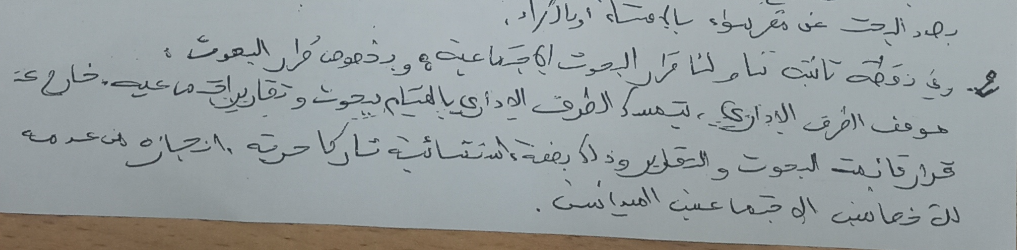 بصدد البحث عن مقر سواء بالإقتناء أو بالكراء.
وفي نقطة ثانية تناولنا قرار البحوث الإجتماعية، وبخصوص قرار البحوث:
موقف الطرف الإداري، يتمسك الطرف الإداري بالقيام ببحوث وتقارير إجتماعية. خارج عن
قرار قائمة البحوث والتقارير وذلك بصفة إستثنائية تاركا حرية. إنجازه من عدمه
للأخصائيين الإجتماعيين الميدانيين.